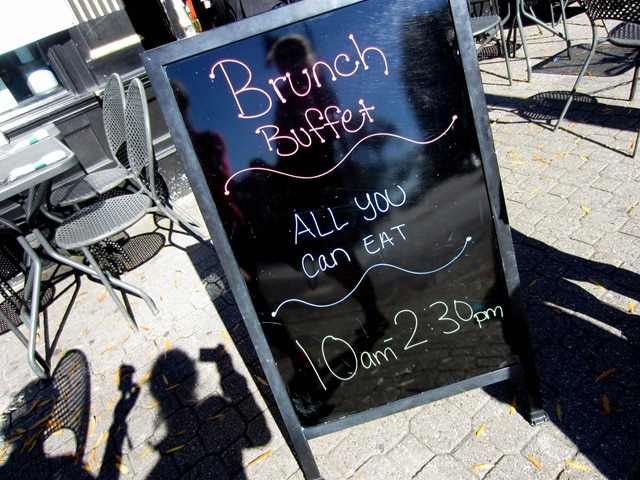 Brunch
Buffet
ALL YOU
Can EAT
10am-2:30pm